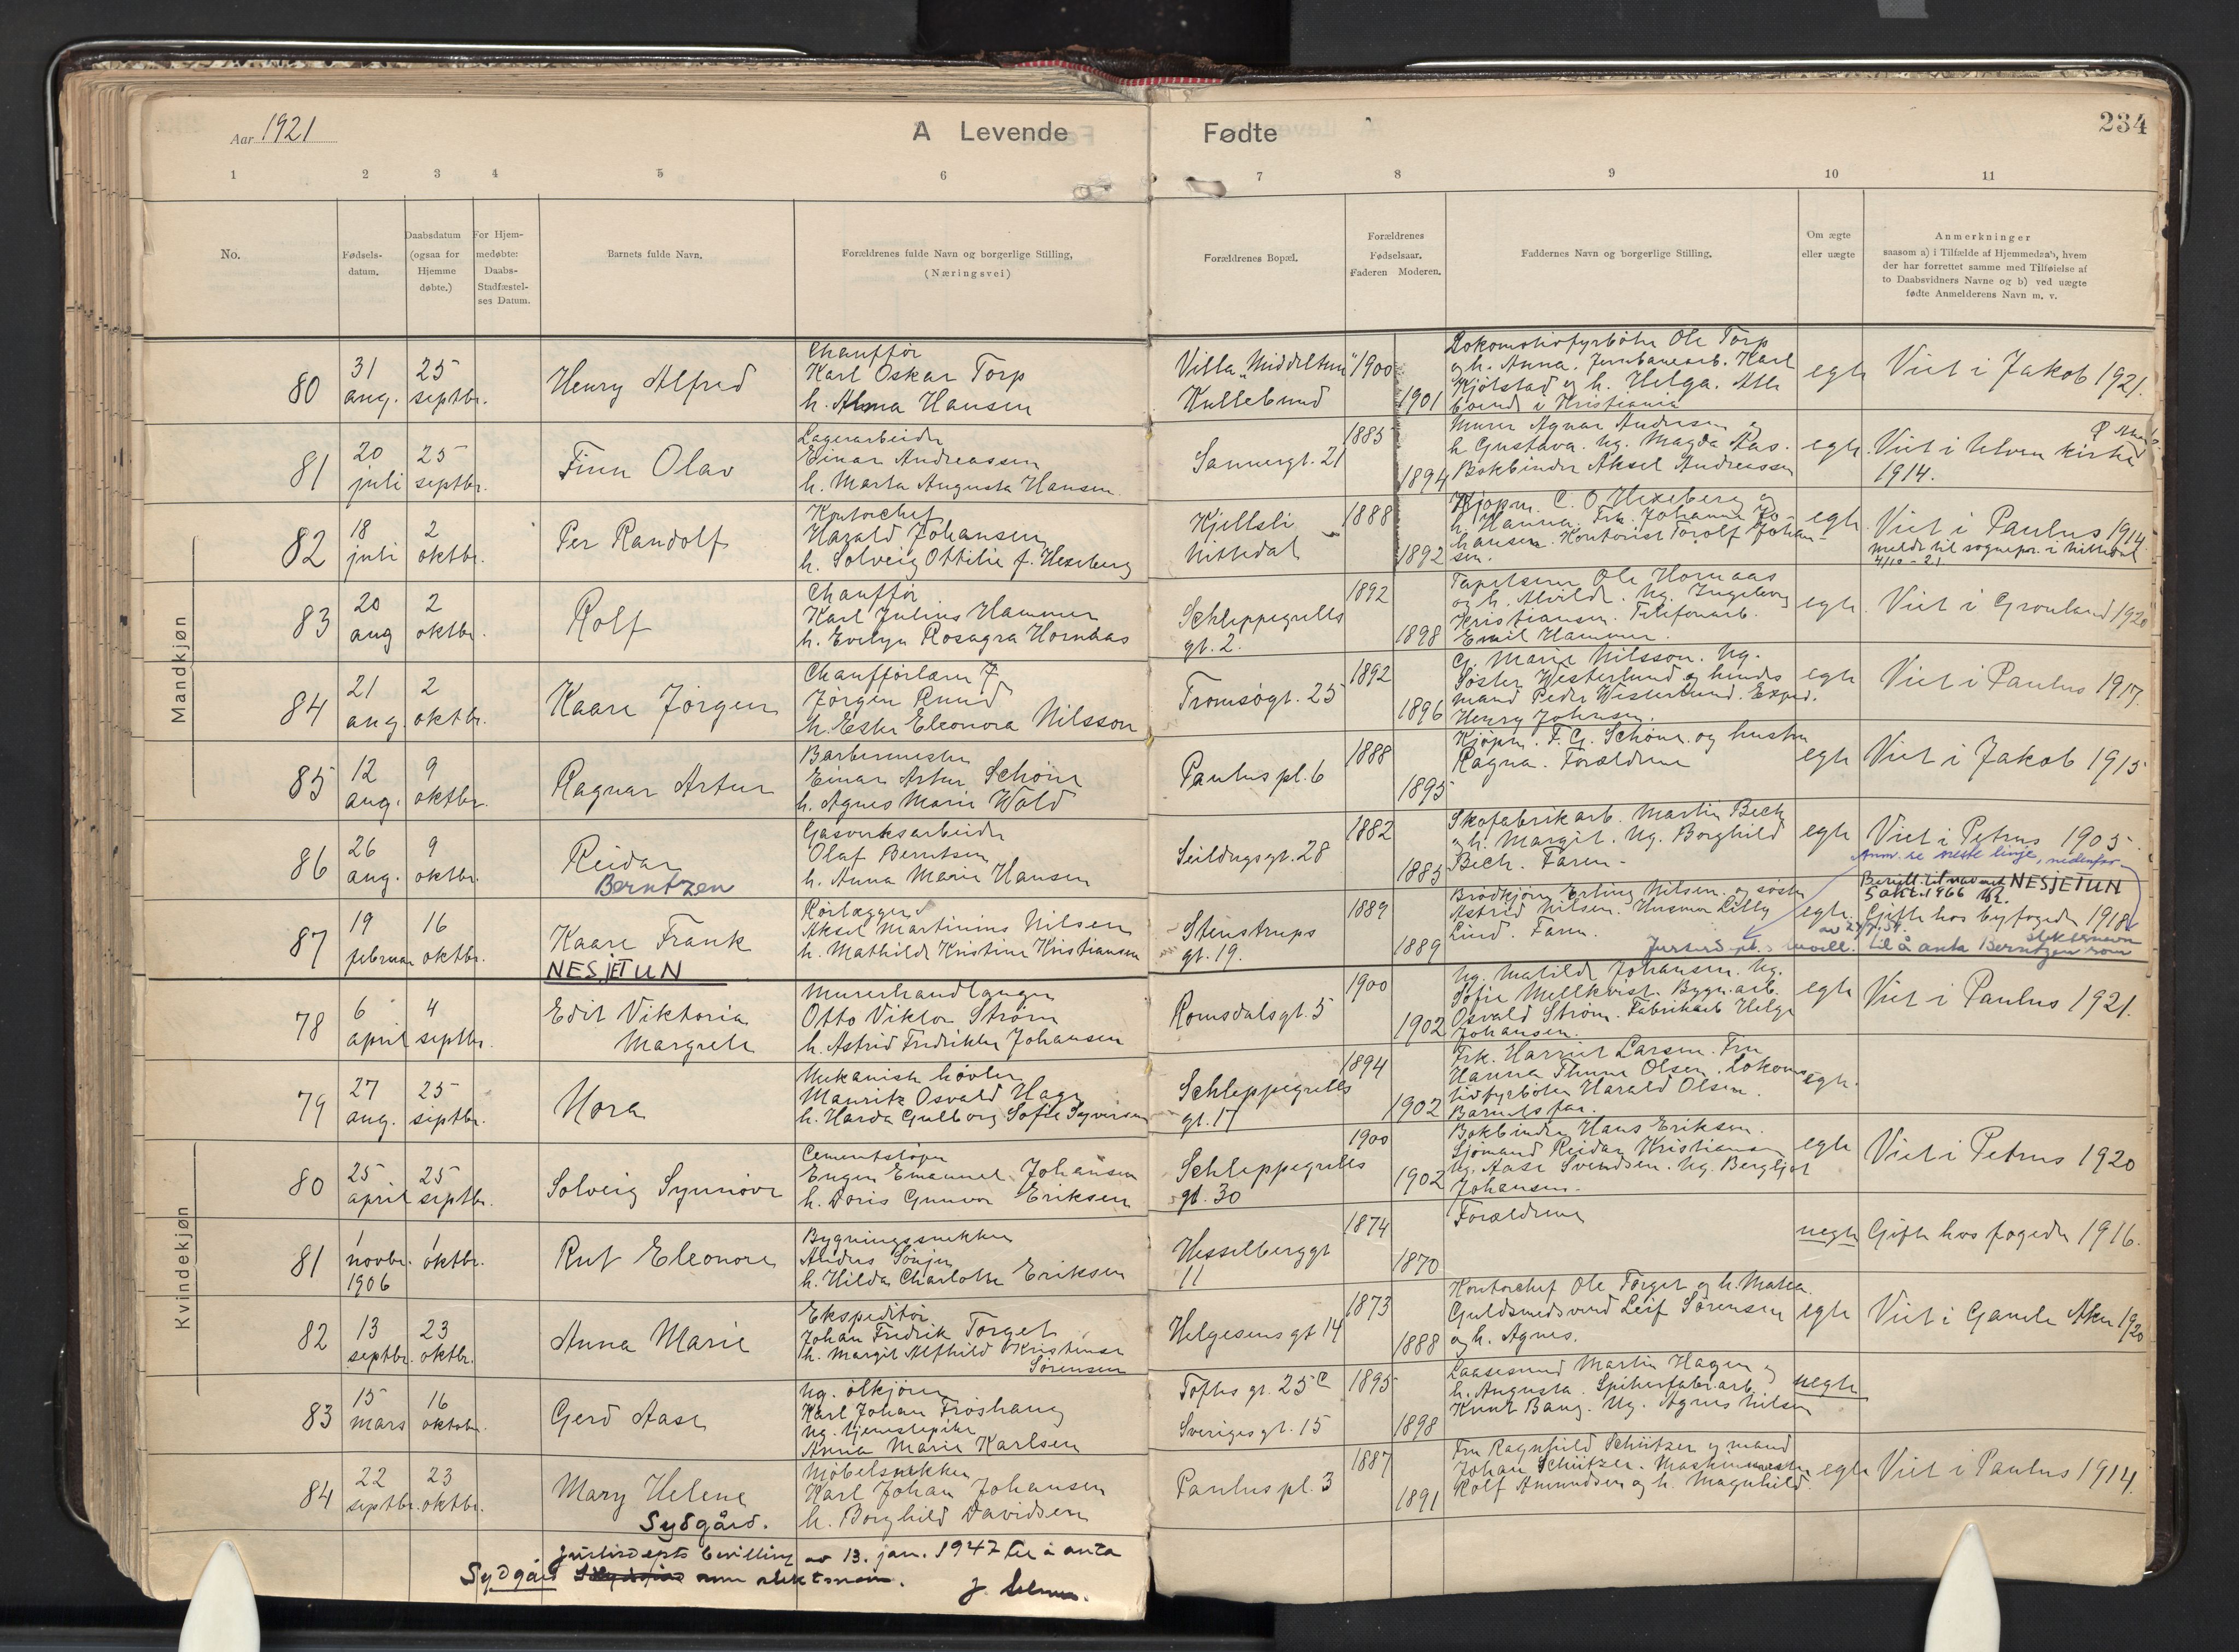 Aar 1921
A Levende Fødte
234
1 2 3 4 5 6 7 8 9 10 11
No.
Fødsels-
datum.
Daabsdatum
(ogsaa for
Hjemme
døbte.)
For Hjem-
medøbte:
Daabs-
Stadfæstel-
ses Datum.
Barnets fulde Navn.
Forældrenes fulde Navn og borgerlige Stilling,
(Næringsvei)
Forældrenes Bopæl.
Forældrenes
Fødselsaar.
Faderen Moderen.
Faddernes Navn og borgerlige Stilling.
Om ægte
eller uægte
Anmerkninger
saasom a) i Tilfælde af Hjemmedaab, hvem
der har forrettet samme med Tilføielse af
to Daabsvidners Navne og b) ved uægte
fødte Anmelderens Navn m. v.
Mandkjøn
80
31
aug.
25
septbr.
Henry Alfred
Chauffør
Karl Oskar Torp
h. Alma Hansen
Villa "Middeltun"
Kullebund
1900
1901
Lokomotivfyrbøter Ole Torp
og h. Anna. Jernbanearb. Karl
Kjølstad og h. Helga. Alle
boende i Kristiania
egte
Viet i Jakob 1921.
81
20
juli
25
septbr.
Finn Olav
Lagerarbeider
Einar Andreassen
h. Marta Augusta Hansen.
Sannergt. 21
1885
1894
Murer Agnar Andersen og
h Gustava. Ug. Magda Aas.
Bokbinder Aksel Andreassen
egte
Viet i Ulven kirke
1914.
82
18
juli
2
oktbr.
Per Randolf
Kontorchef
Harald Johansen
h. Solveig Ottilie f. Hexeberg
Kjellsli
Nittedal
1888
1892
Kjøpm. C. O. Hexeberg og
h. Hanna. Frk. Johanne Jo-
hansen. Kontorist Torolf Johan-
sen.
egte.
Viet i Paulus 1914.
Meldt til sognepr. i Nittedal
4/10-21
83
20
aug
2
oktbr.
Rolf
Chauffør
Karl Julius Hammer
h. Evelyn Rosagra Hornaas
Schleppegrells
gt. 2.
1892
1898
Tapetserer Ole Hornaas
og h. Alvilde. Ug. Ingeborg
Kristiansen. Telefonarb.
Emil Hammer.
egte.
Viet i Grønland 1920
84
21
aug.
2
oktbr.
Kaare Jørgen
Jørgen Ruud
h. Ester Eleonora Nilsson
Tromsøgt. 25
1892
1896
G. Marie Nilsson. Ug.
Søster Westerlund og hendes
mand Peder Westerlund. Exped.
Henry Johnsen.
egte
Viet i Paulus 1917.
85
12
aug.
9
oktbr.
Ragnar Artur
Barbermester
Einar Artur Schøne
h. Agnes Marie Wold
Paulus pl. 6
1888
1895
Kjøpm. F. G. Schøne og hustru
Ragna. Forældrene
egte
Viet i Jakob 1915
86
26
aug.
9
oktbr.
Reidar
Berntzen
Gasverksarbeider
Olaf Berntsen
h. Anna Marie Hansen
Seildugsgt. 28
1882
1885
Skofabrikarb. Martin Bech
og h. Margit. Ug. Borghild
Bech. Faren.
egte
Viet i Petrus 1905.
Anm. se neste linje, nedenfor
87
19
februar
16
oktbr.
Kaare Frank
NESJETUN
Rørlægger
Aksel Martinius Nilsen
h. Mathilde Kristine Kristiansen
Stenstrups
gt. 19.
1889
1889
Brødkjører Erling Nilsen og søster
Astrid Nilsen. Husmor Lilly
Lind. Faren.
egte.
NESJETUN
5 okt. 1966
Gifte hos byfogeden 1918
til å anta Berntzen som
slektsnavn
Kvindekjøn
78
6
april
4
septbr.
Edit Viktoria
Margrete
Murerhandlanger
Otto Viktor Strøm
h. Astrid Fredrikke Johansen
Romsdalsgt. 5
1900
1902
Ug. Matilde Johansen. Ug.
Sofie Mellkvist. Bygn.arb.
Osvald Strøm. Fabrikarb Helge
Johansen.
egte
Viet i Paulus 1921.
79
27
aug.
25
septbr.
Nora
Mekanisk høvler
Mauritz Osvald Hage
h. Harda Gulborg Sofie Syversen
Schleppegrells
gt. 17
1894
1902
Frk. Harriet Larsen. Fru
Hanna Thune Olsen. Lokomo-
tivfyrbøter Harald Olsen.
Barnets far.
egte.
80
25
april
25
septbr.
Solveig Synnøve
Cementstøper
Eugen Emanuel Johansen
h. Doris Gunvor Eriksen
Schleppegrells
gt. 30
1900
1902
Bokbinder Hans Eriksen.
Sjømand Reidar Kristiansen
Ug. Aase Svendsen. Ug. Bergljot
Johansen.
egte
Viet i Petrus 1920
81
1
novbr.
1906
1
oktbr.
Rut Eleonore
Bygningssnekker
h. Hilda Charlotte Eriksen
Hesselberggt
11
1874
1870
Forældrene
uegte
Gifte hos fogeden 1916.
82
13
septbr.
23
oktbr.
Anna Marie
Ekspeditør
Johan Fredrik Torget
h. Margit Alfhild Kristense
Sørensen
Helgesens gt 14
1873
1888
Kontorchef Ole Torget og h. Matea
Guldsmedsvend Leif Sørensen
og h. Agnes.
egte
Viet i Gamle Aker 1920
83
15
mars
16
oktobr.
Gerd Aase
Ug. ølkjører
Karl Johan Frøshaug
Ug. tjenestepike
Anna Marie Karlsen
Toftes gt. 25 C
Sverigesgt. 15
1895
1898
Laasesmed Martin Hagen og
h. Augusta. Spikerfabr.arb.
Knut Bang. Ug. Agnes Nilsen
uegte
84
22
septbr.
23
oktbr.
Mary Helene
Sydgård.
Møbelsnekker
Karl Johan Johansen
h. Borghild Davidsen
Paulus pl. 3
1887
1891
Fru Ragnhild Schützer og mand
Johan Schützer. Maskinmester
Rolf Amundsen og h. Magnhild.
egte
Viet i Paulus 1914.
Justisdepts bevilling av 13. jan. 1947 til å anta
Sydgård som slektsnavn.